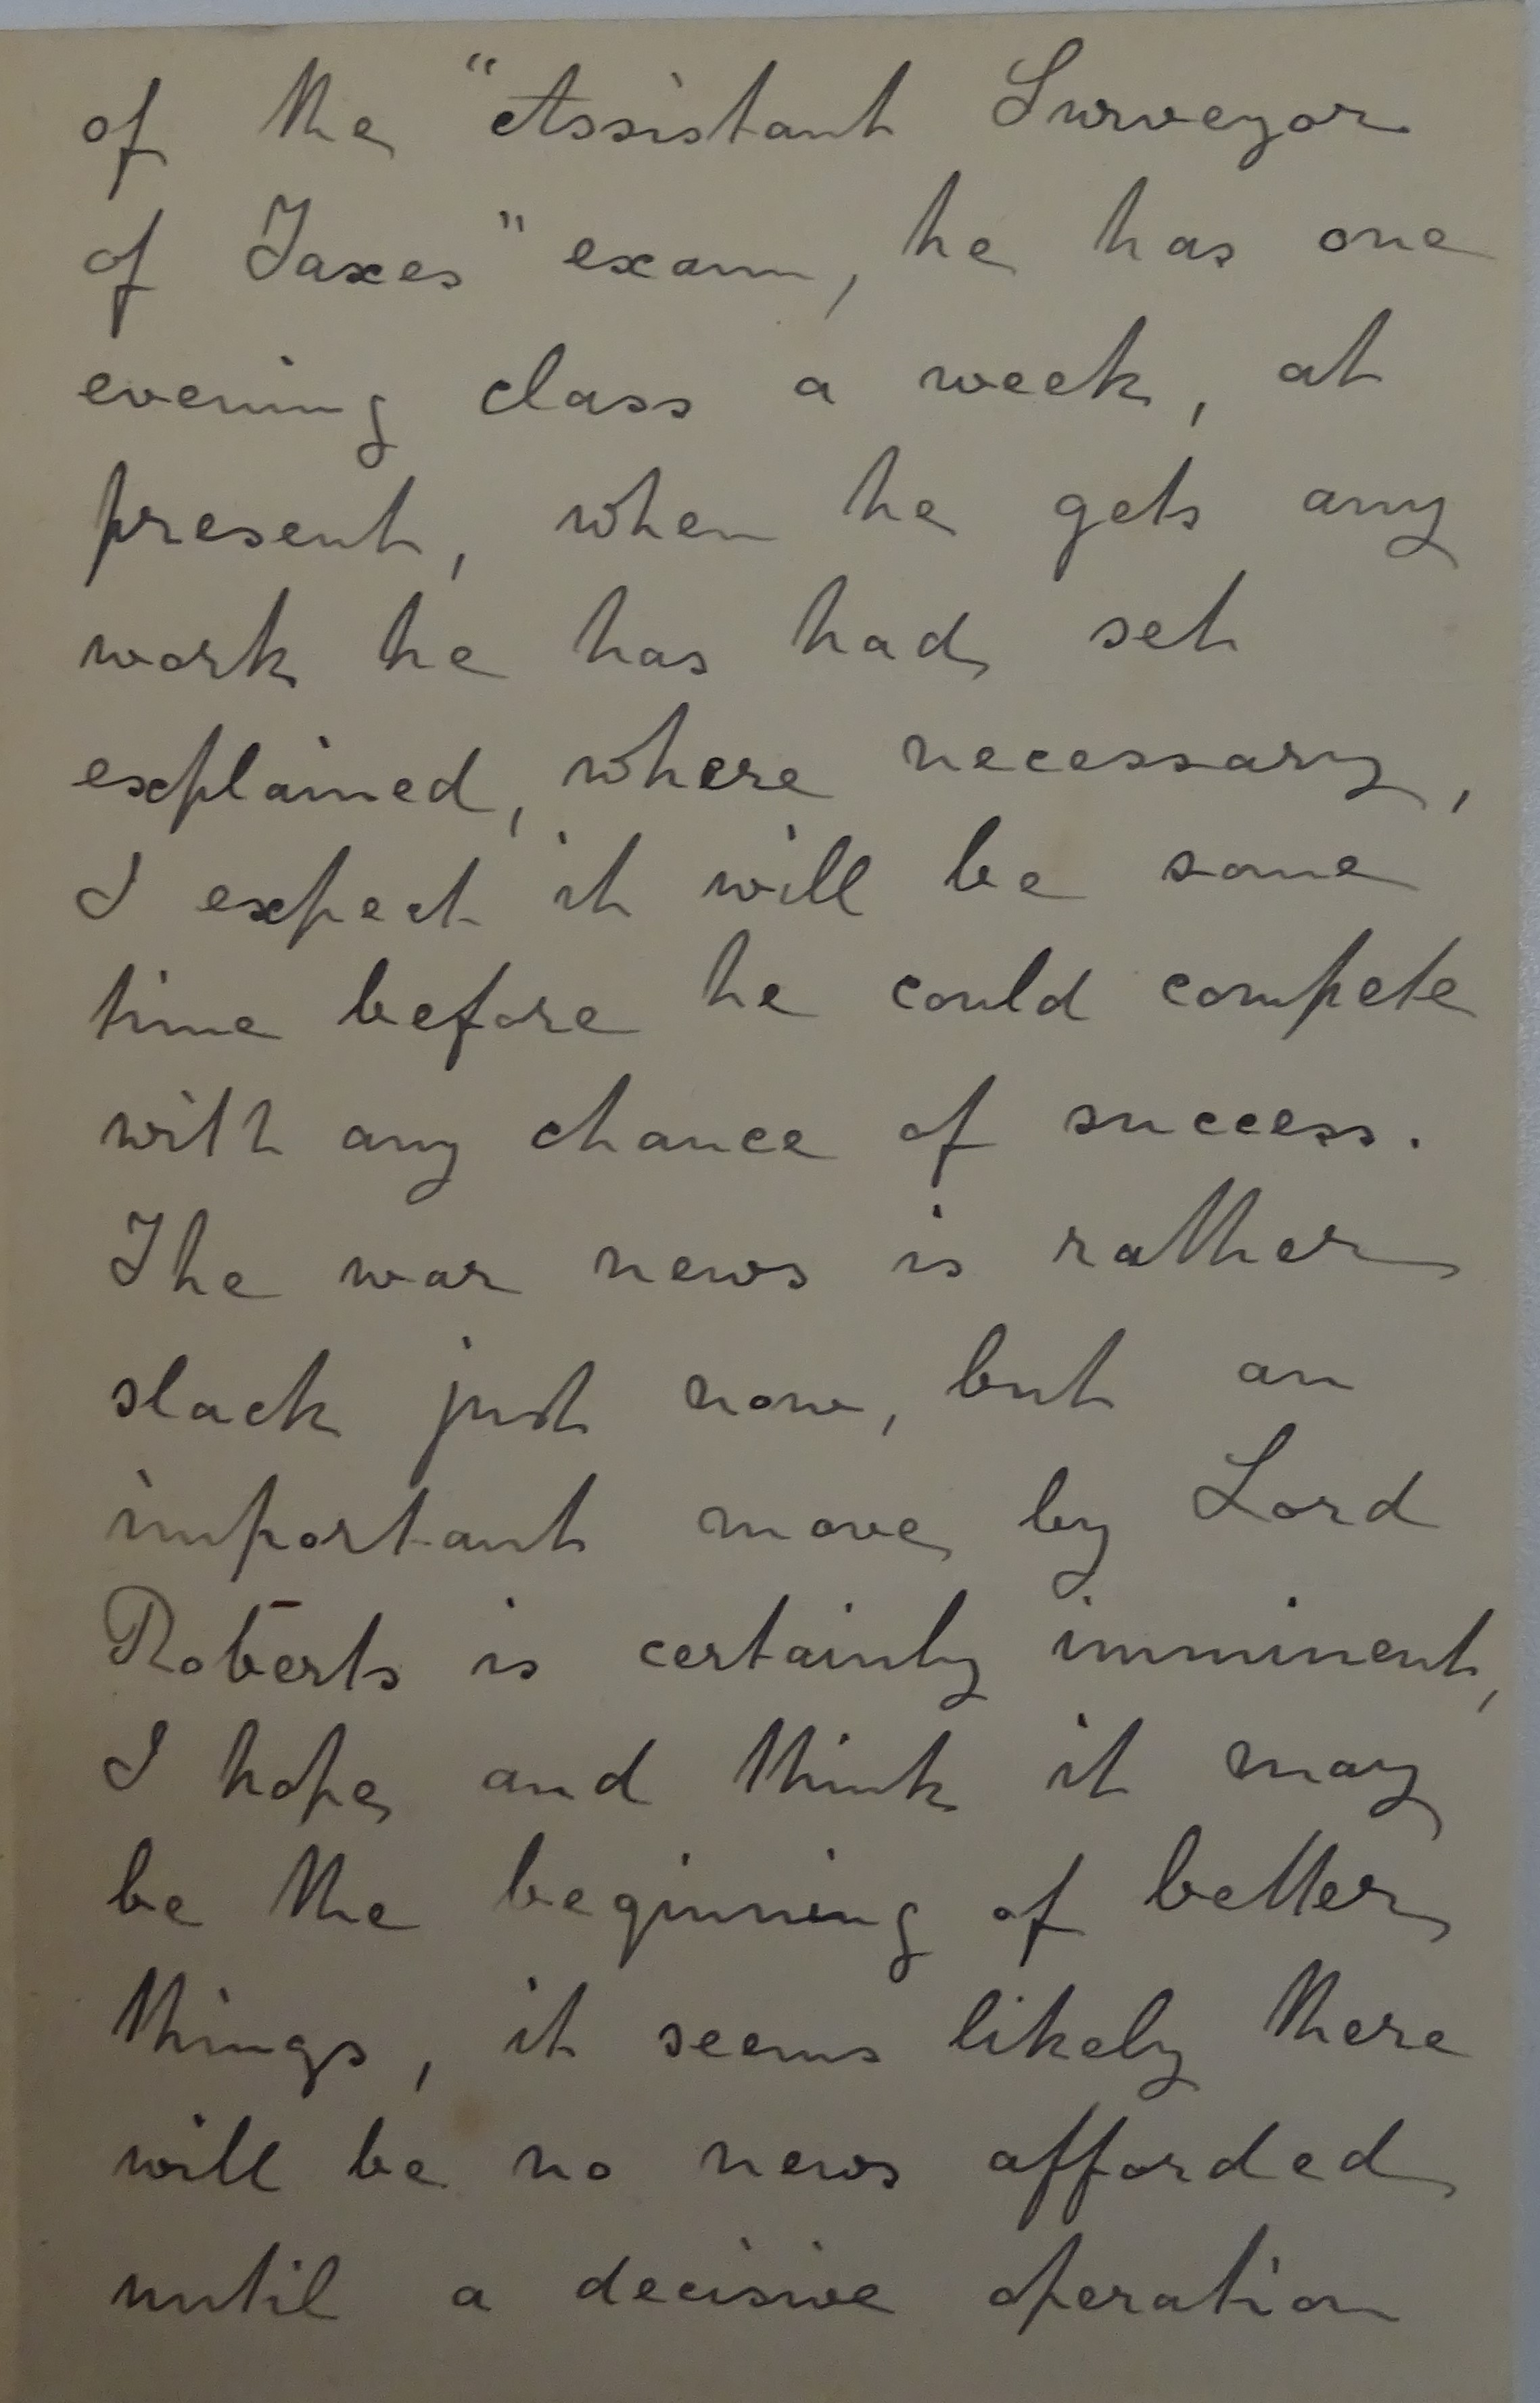 of the "Assistant Surveyor
of Taxes" exam, he has one
evening class a week, at
present, when he gets any
work he has had set
explained, where necessary,
I expect it will be some
time before he could compete
with any chance of success.
The war news is rather
slack just now, but an
important move by Lord
Roberts is certainly imminent,
I hope and think it may
be the beginning of better
things, it seems likely there
will be no news afforded
until a decisive operation